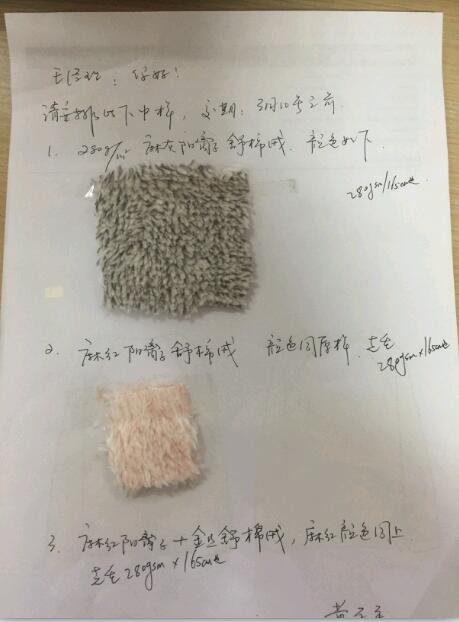 王经理：您好！
请安排以下中样，交期：3月10号之前
1. 280g/m² 麻灰阳离子舒棉绒. 颜色如下
280gsm/165cm
2. 麻红阳离子舒棉绒 颜色同原样.
280gsm×165cm
3. 麻红阳离子+金丝舒棉绒，麻红颜色同上
280gsm×165cm